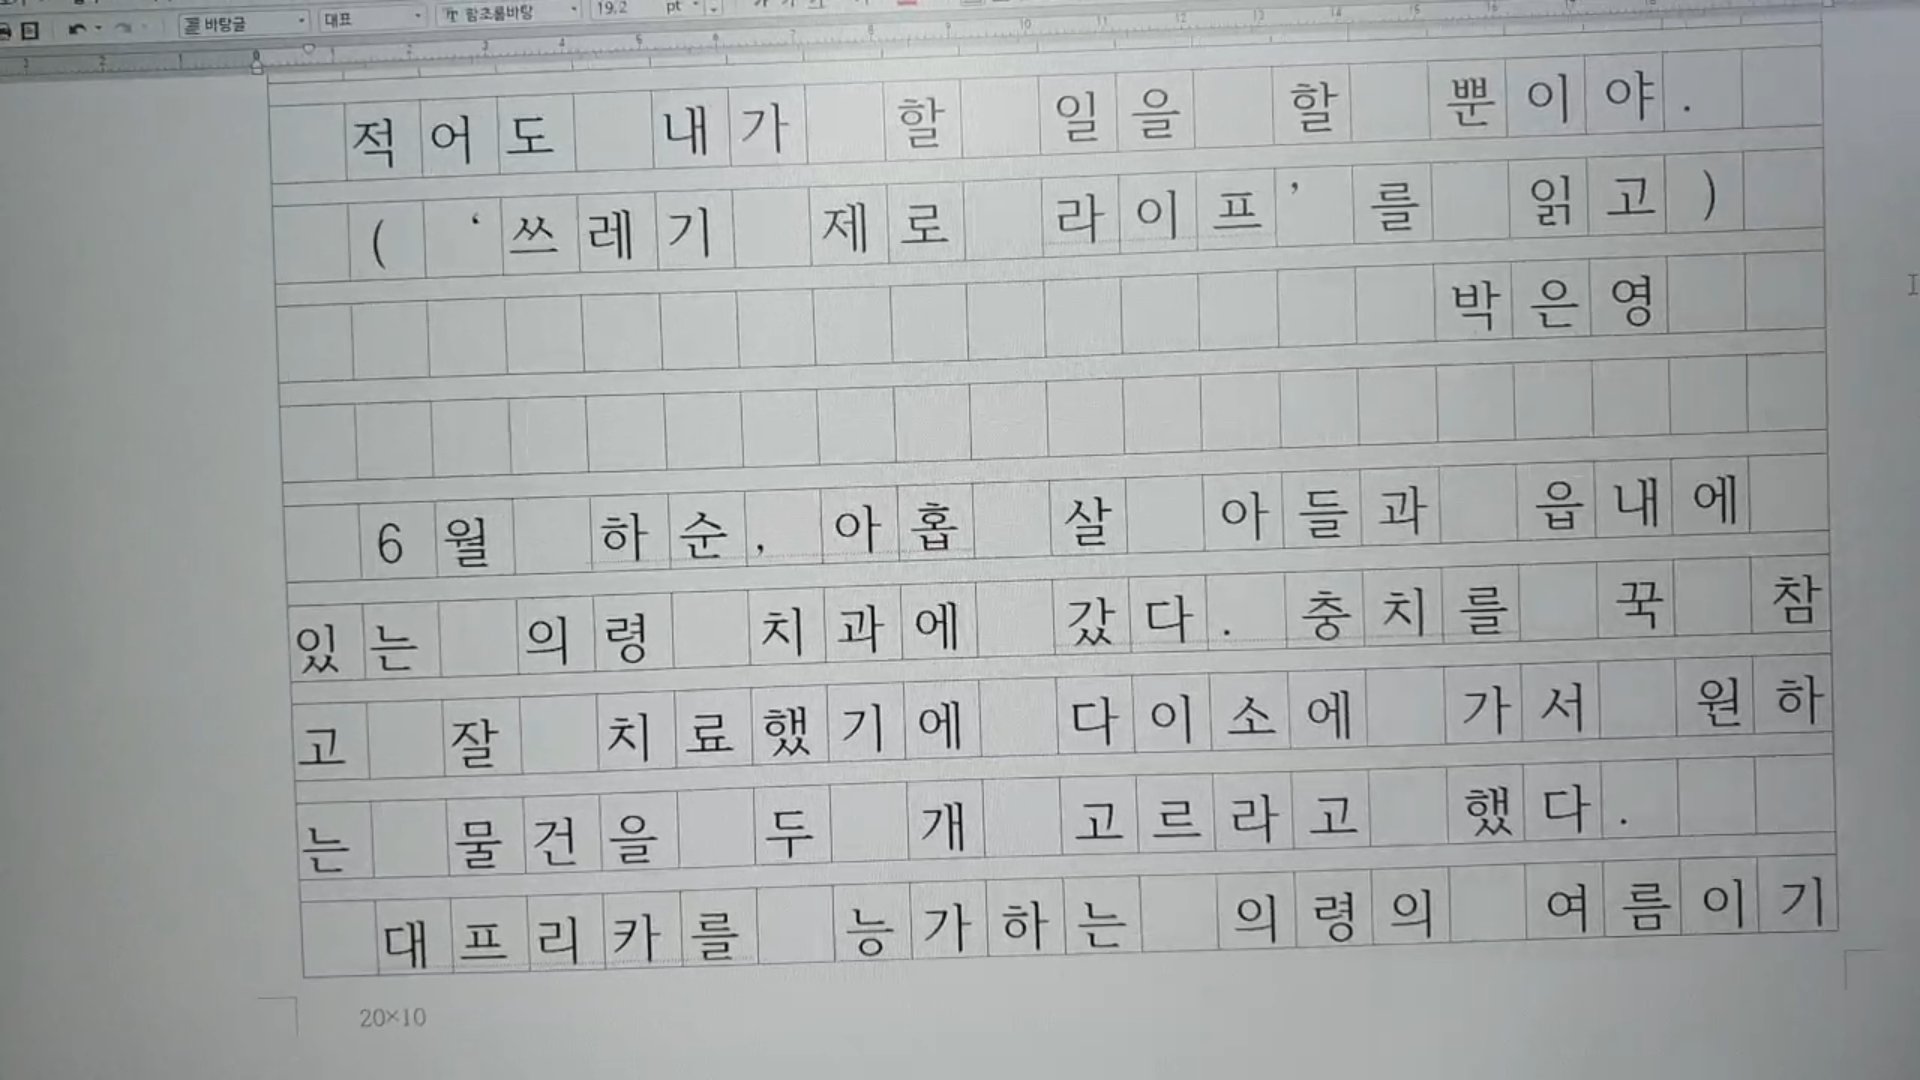 바탕글 대표 함초롬바탕 19.2 pt
적어도 내가 할 일을 할 뿐이야.
( ‘쓰레기 제로 라이프’를 읽고)
박은영
6월 하순, 아홉 살 아들과 읍내에
있는 의령 치과에 갔다. 충치를 꾹 참
고 잘 치료했기에 다이소에 가서 원하
는 물건을 두 개 고르라고 했다.
대프리카를 능가하는 의령의 여름이기
20×10